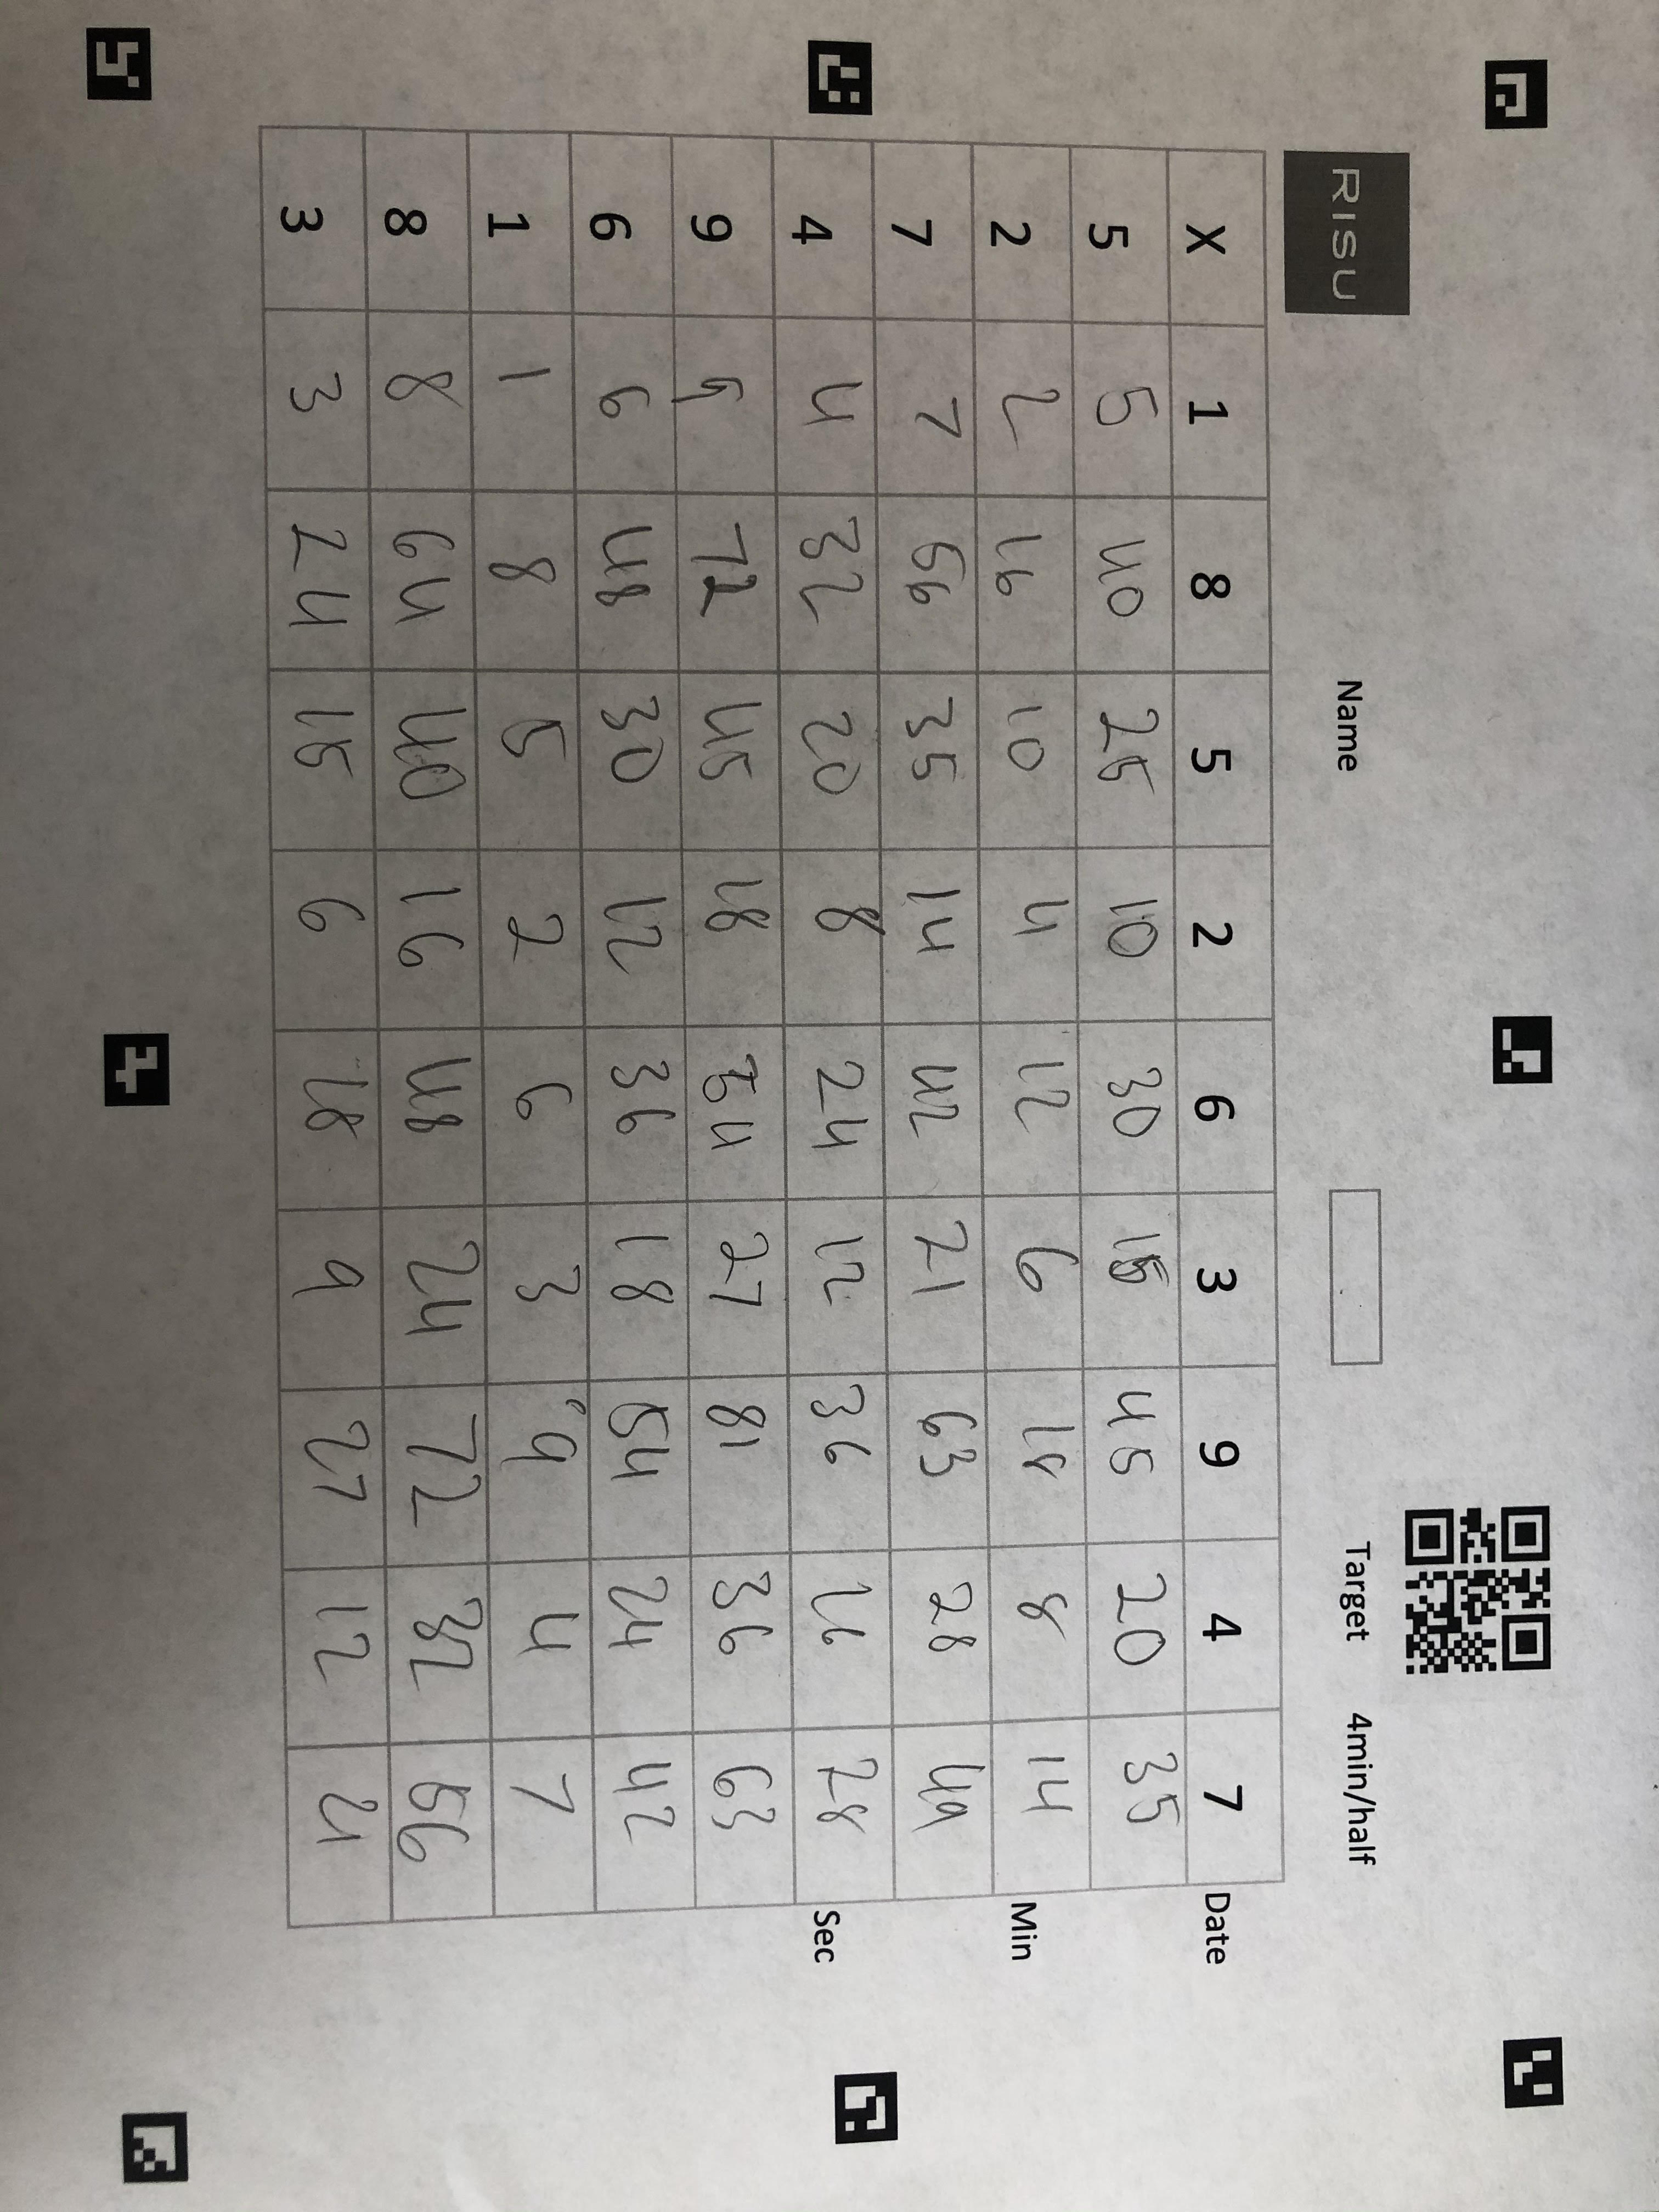 RISU
Name Target 4min/half
X 1 8 5 2 6 3 9 4 7 Date
5 5 40 25 10 30 15 45 20 35
2 2 16 10 4 12 6 18 8 14 Min
7 7 56 35 14 42 21 63 28 49
4 4 32 20 8 24 12 36 16 28 Sec
9 9 72 45 18 54 27 81 36 63
6 6 48 30 12 36 18 54 24 42
1 1 8 5 2 6 3 9 4 7
8 8 64 40 16 48 24 72 32 56
3 3 24 15 6 18 9 27 12 21